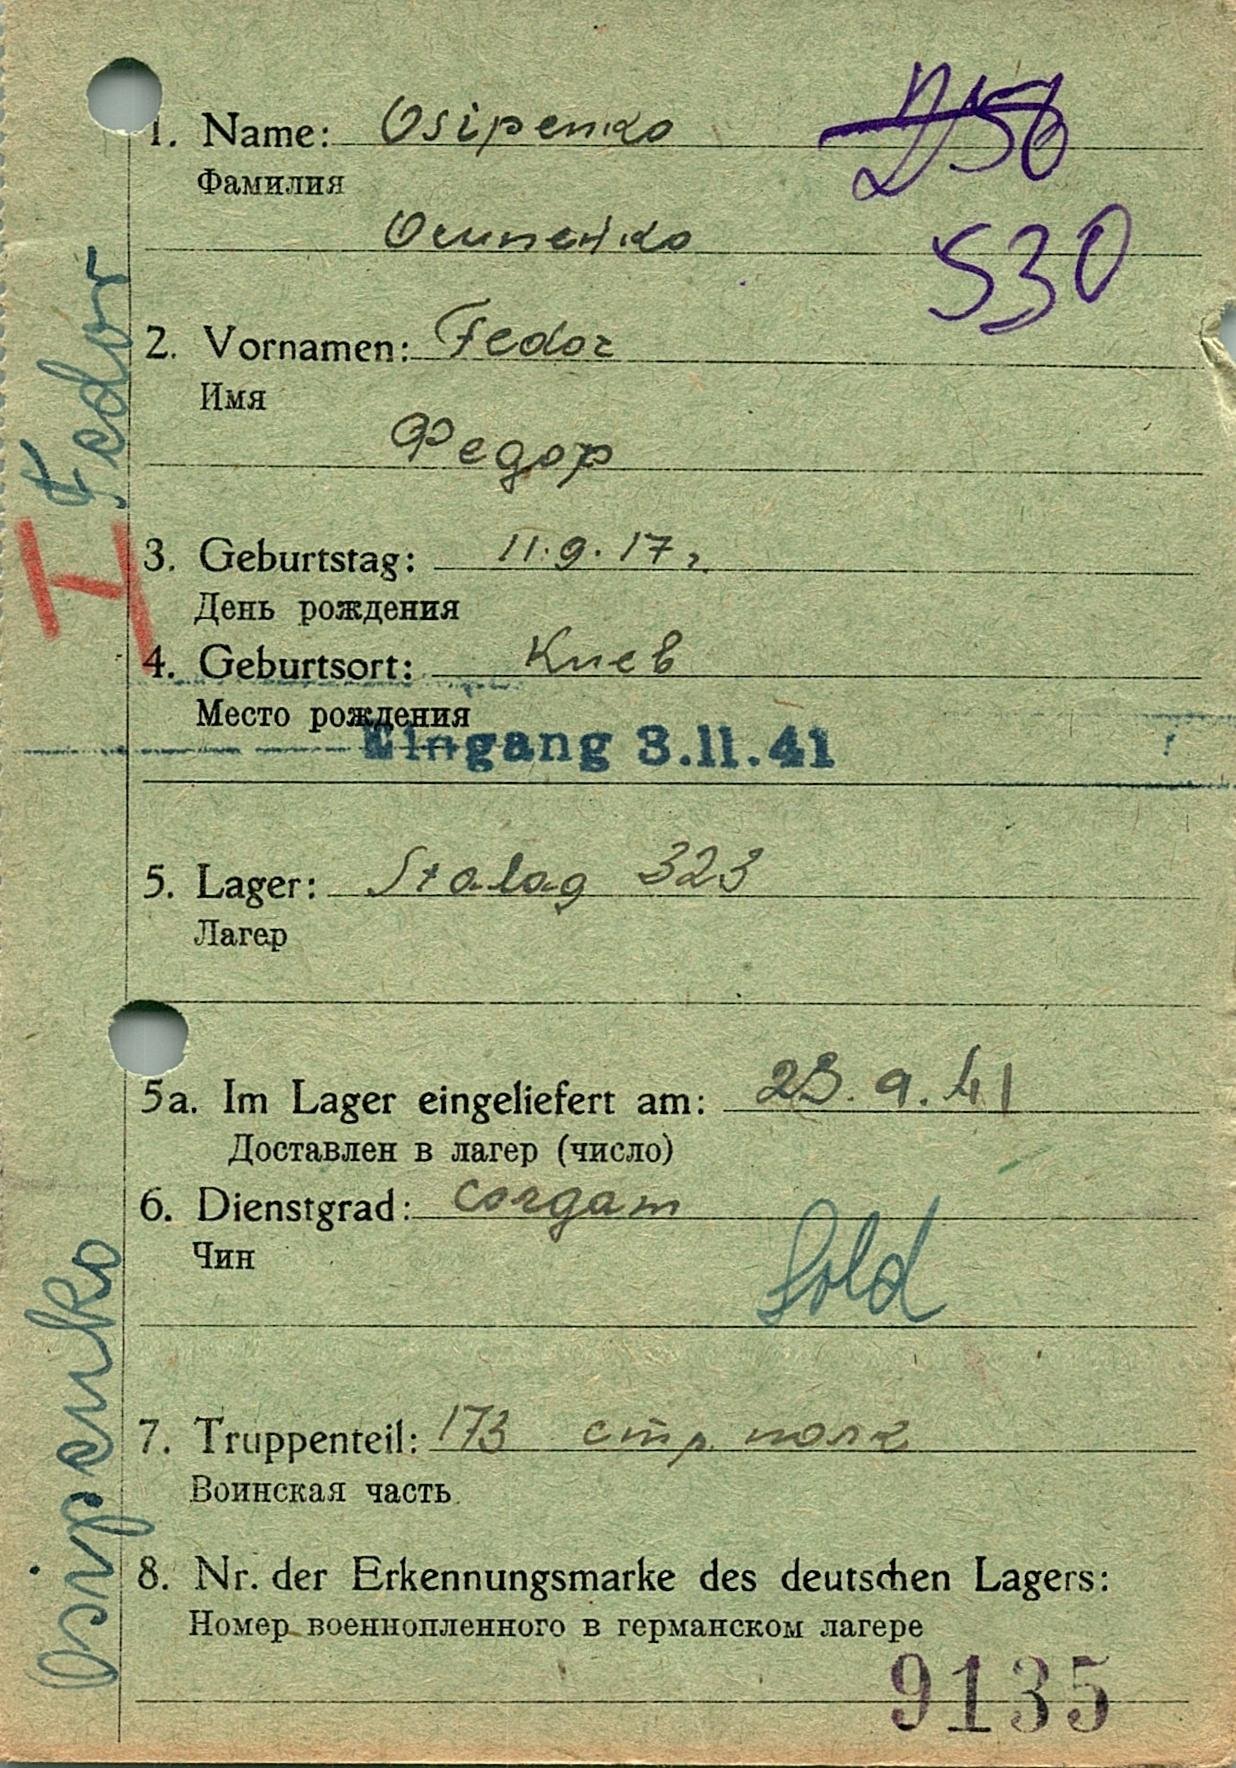 1. Name: Osipenko
Фамилия
D 56
Осипенко
530
2. Vornamen: Fedor
Имя
Федор
3. Geburtstag: 11.9.17 г.
День рождения
4. Geburtsort: Киев
Место рождения
Eingang 3.11.41
5. Lager: Stalag 323
Лагер
5a. Im Lager eingeliefert am: 23.9.41
Доставлен в лагер (число)
6. Dienstgrad: солдат
Чин
Sold
7. Truppenteil: 173 стр. полк
Воинская часть
8. Nr. der Erkennungsmarke des deutschen Lagers:
Номер военнопленного в германском лагере
9135
Osipenko
H
Fedor